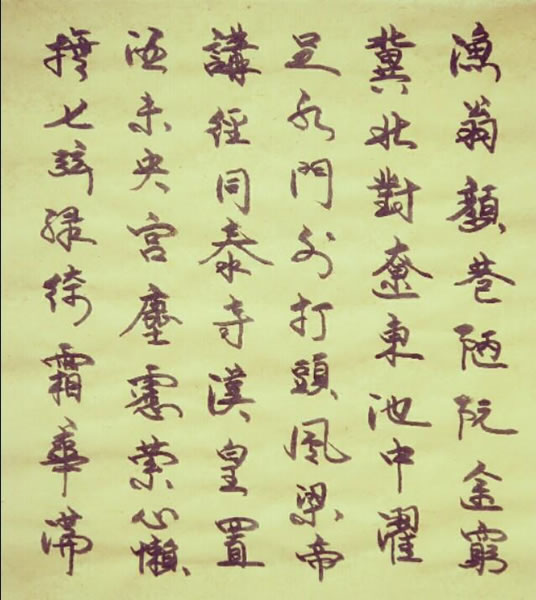 漁翁顏巷陋阮途窮
冀北對遼東池中濯
足水門外打頭風梁帝
講經同泰寺漢皇置
酒未央宮塵慮縈心懶
撫七弦綠綺霜華滿